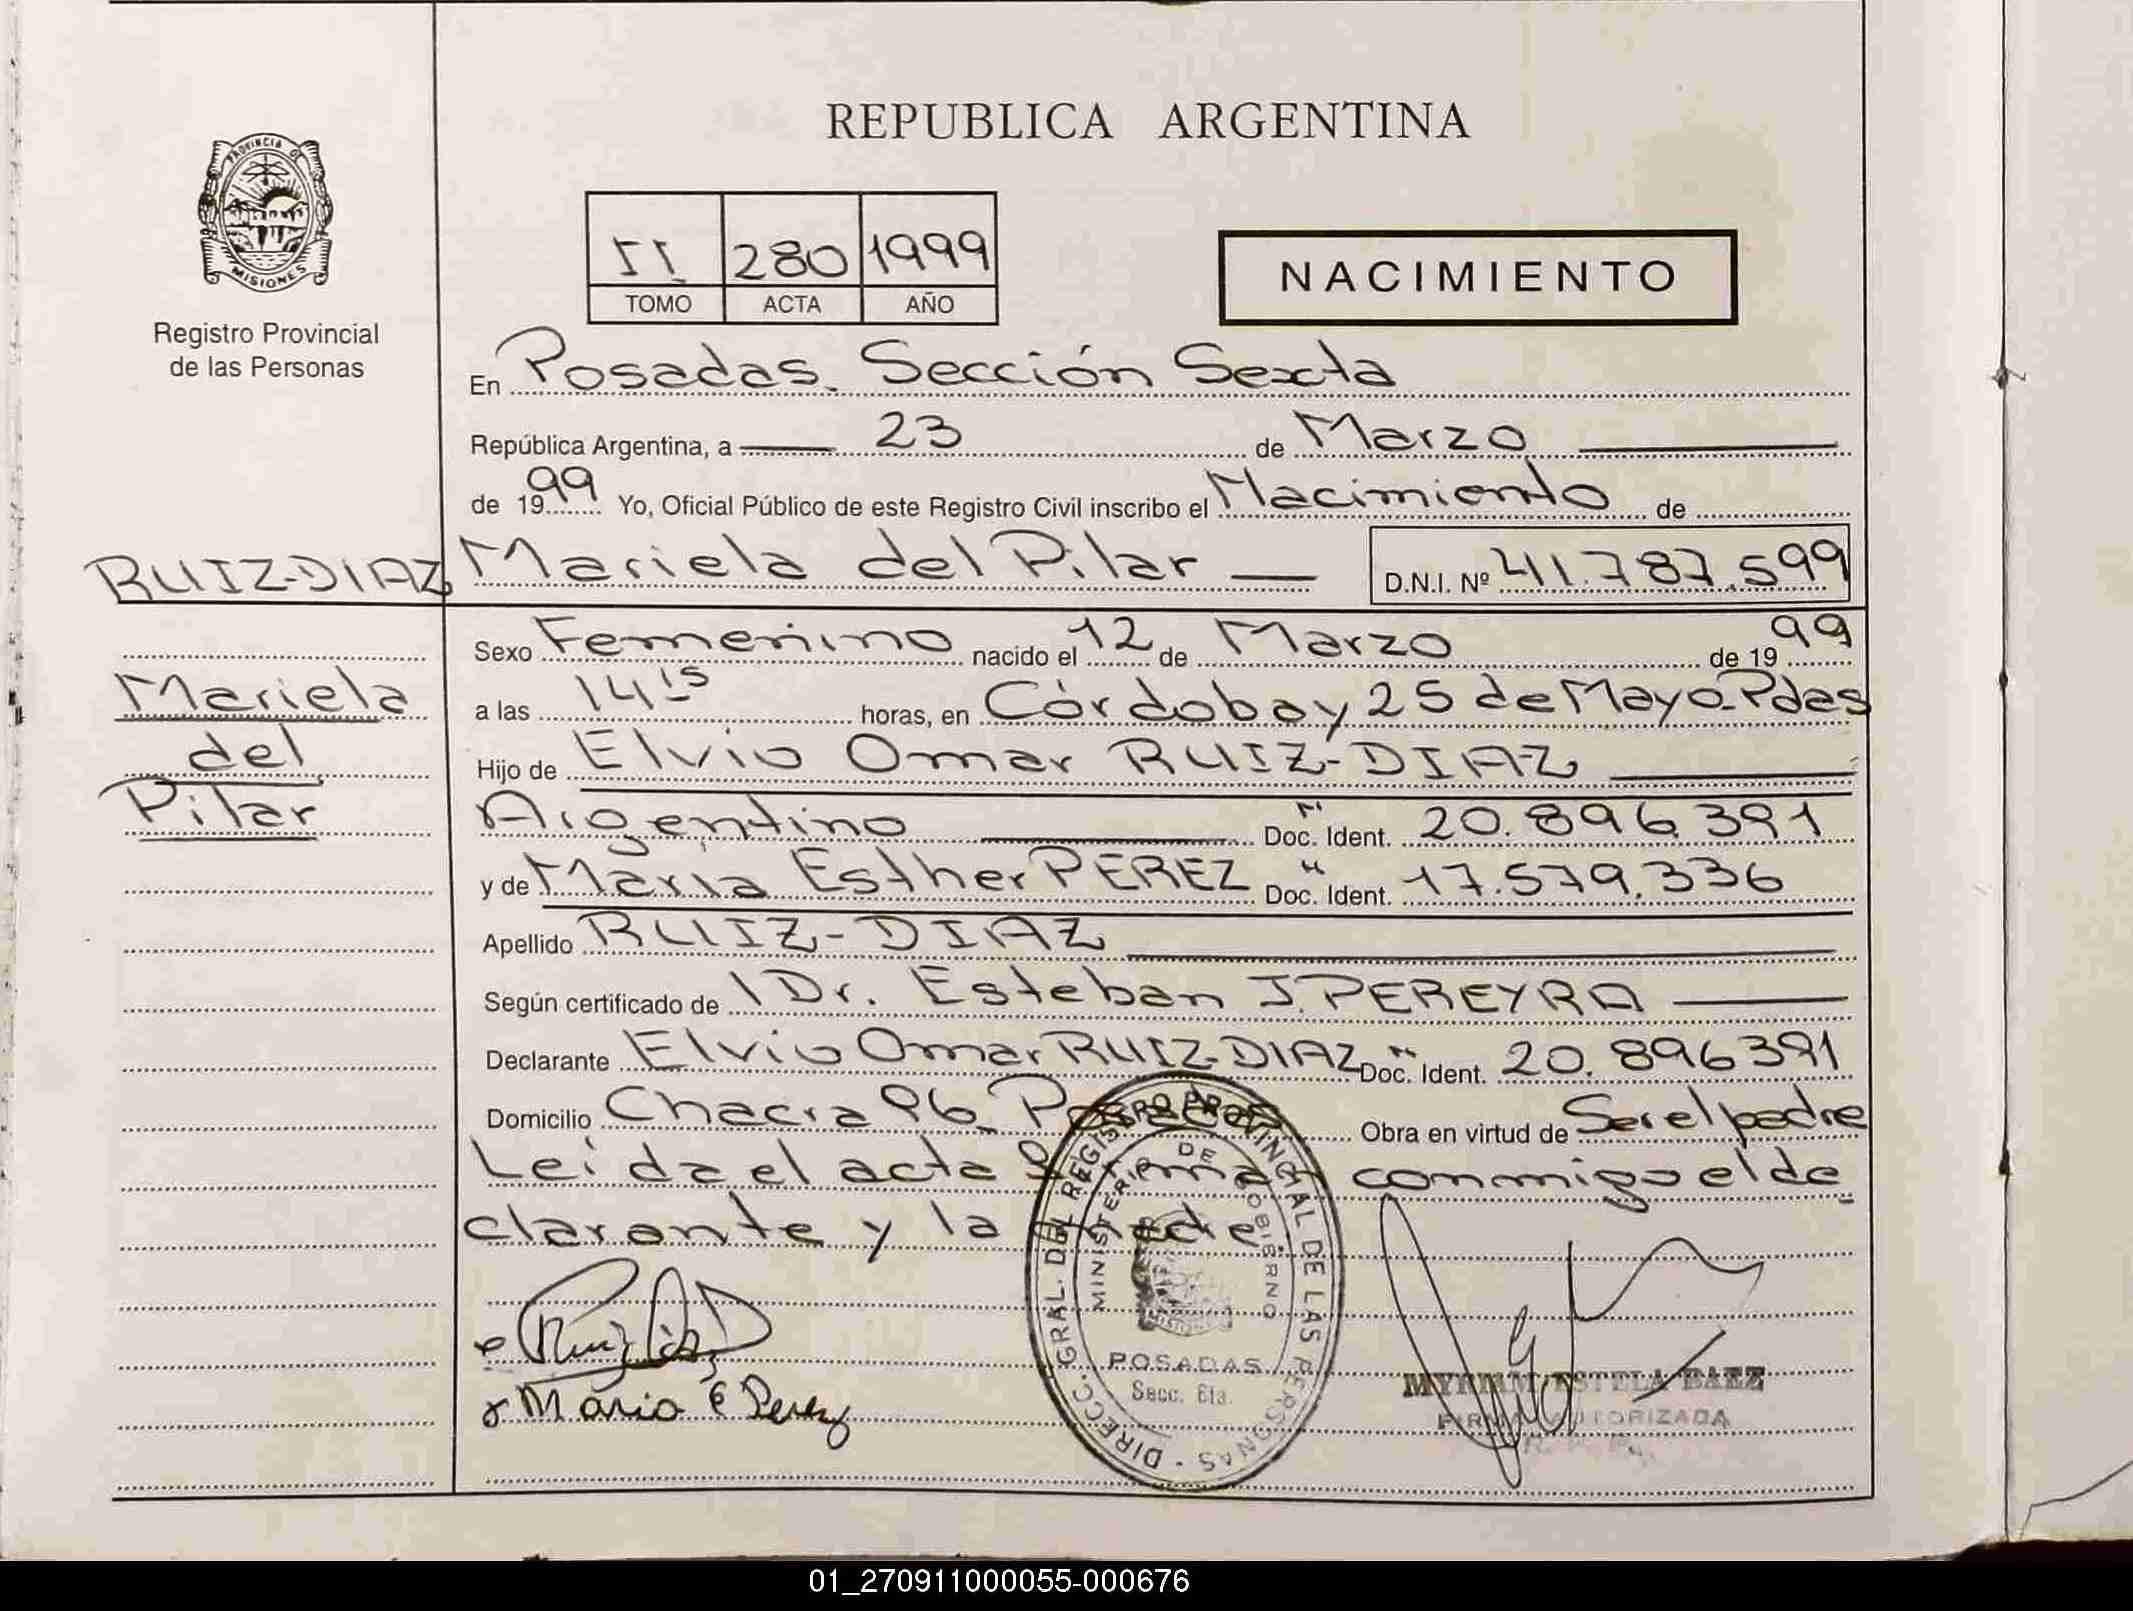 REPUBLICA ARGENTINA
PROVINCIA DE
MISIONES
Registro Provincial
de las Personas
II 280 1999
TOMO ACTA AÑO
NACIMIENTO
En Posadas. Sección Sexta
República Argentina, a 23 de Marzo
de 1999 Yo, Oficial Público de este Registro Civil inscribo el Nacimiento de
Mariela del Pilar D.N.I. Nº 41.787.599
RUIZ-DIAZ
Mariela
del
Pilar
Sexo Femenino nacido el 12 de Marzo de 1999
a las 14 15 horas, en Córdoba y 25 de Mayo-Pdas
Hijo de Elvio Omar RUIZ-DIAZ
Argentino Doc. Ident. 20.896.391
y de María Esther PEREZ Doc. Ident. 17.579.336
Apellido RUIZ-DIAZ
Según certificado de Dr. Esteban J. PEREYRA
Declarante Elvio Omar RUIZ-DIAZ Doc. Ident. 20.896391
Domicilio Chacra 96_ Posadas Obra en virtud de Ser el padre
Leída el acta firma conmigo el de
clarante y la madre.
Ruiz Diaz
Maria E Perez
DIRECC. GRAL. DEL REGISTRO PROVINCIAL DE LAS PERSONAS -
MINISTERIO DE GOBIERNO
POSADAS
Secc. 6ta.
MYRIAM ESTELA BAEZ
FIRMA AUTORIZADA
01_270911000055-000676